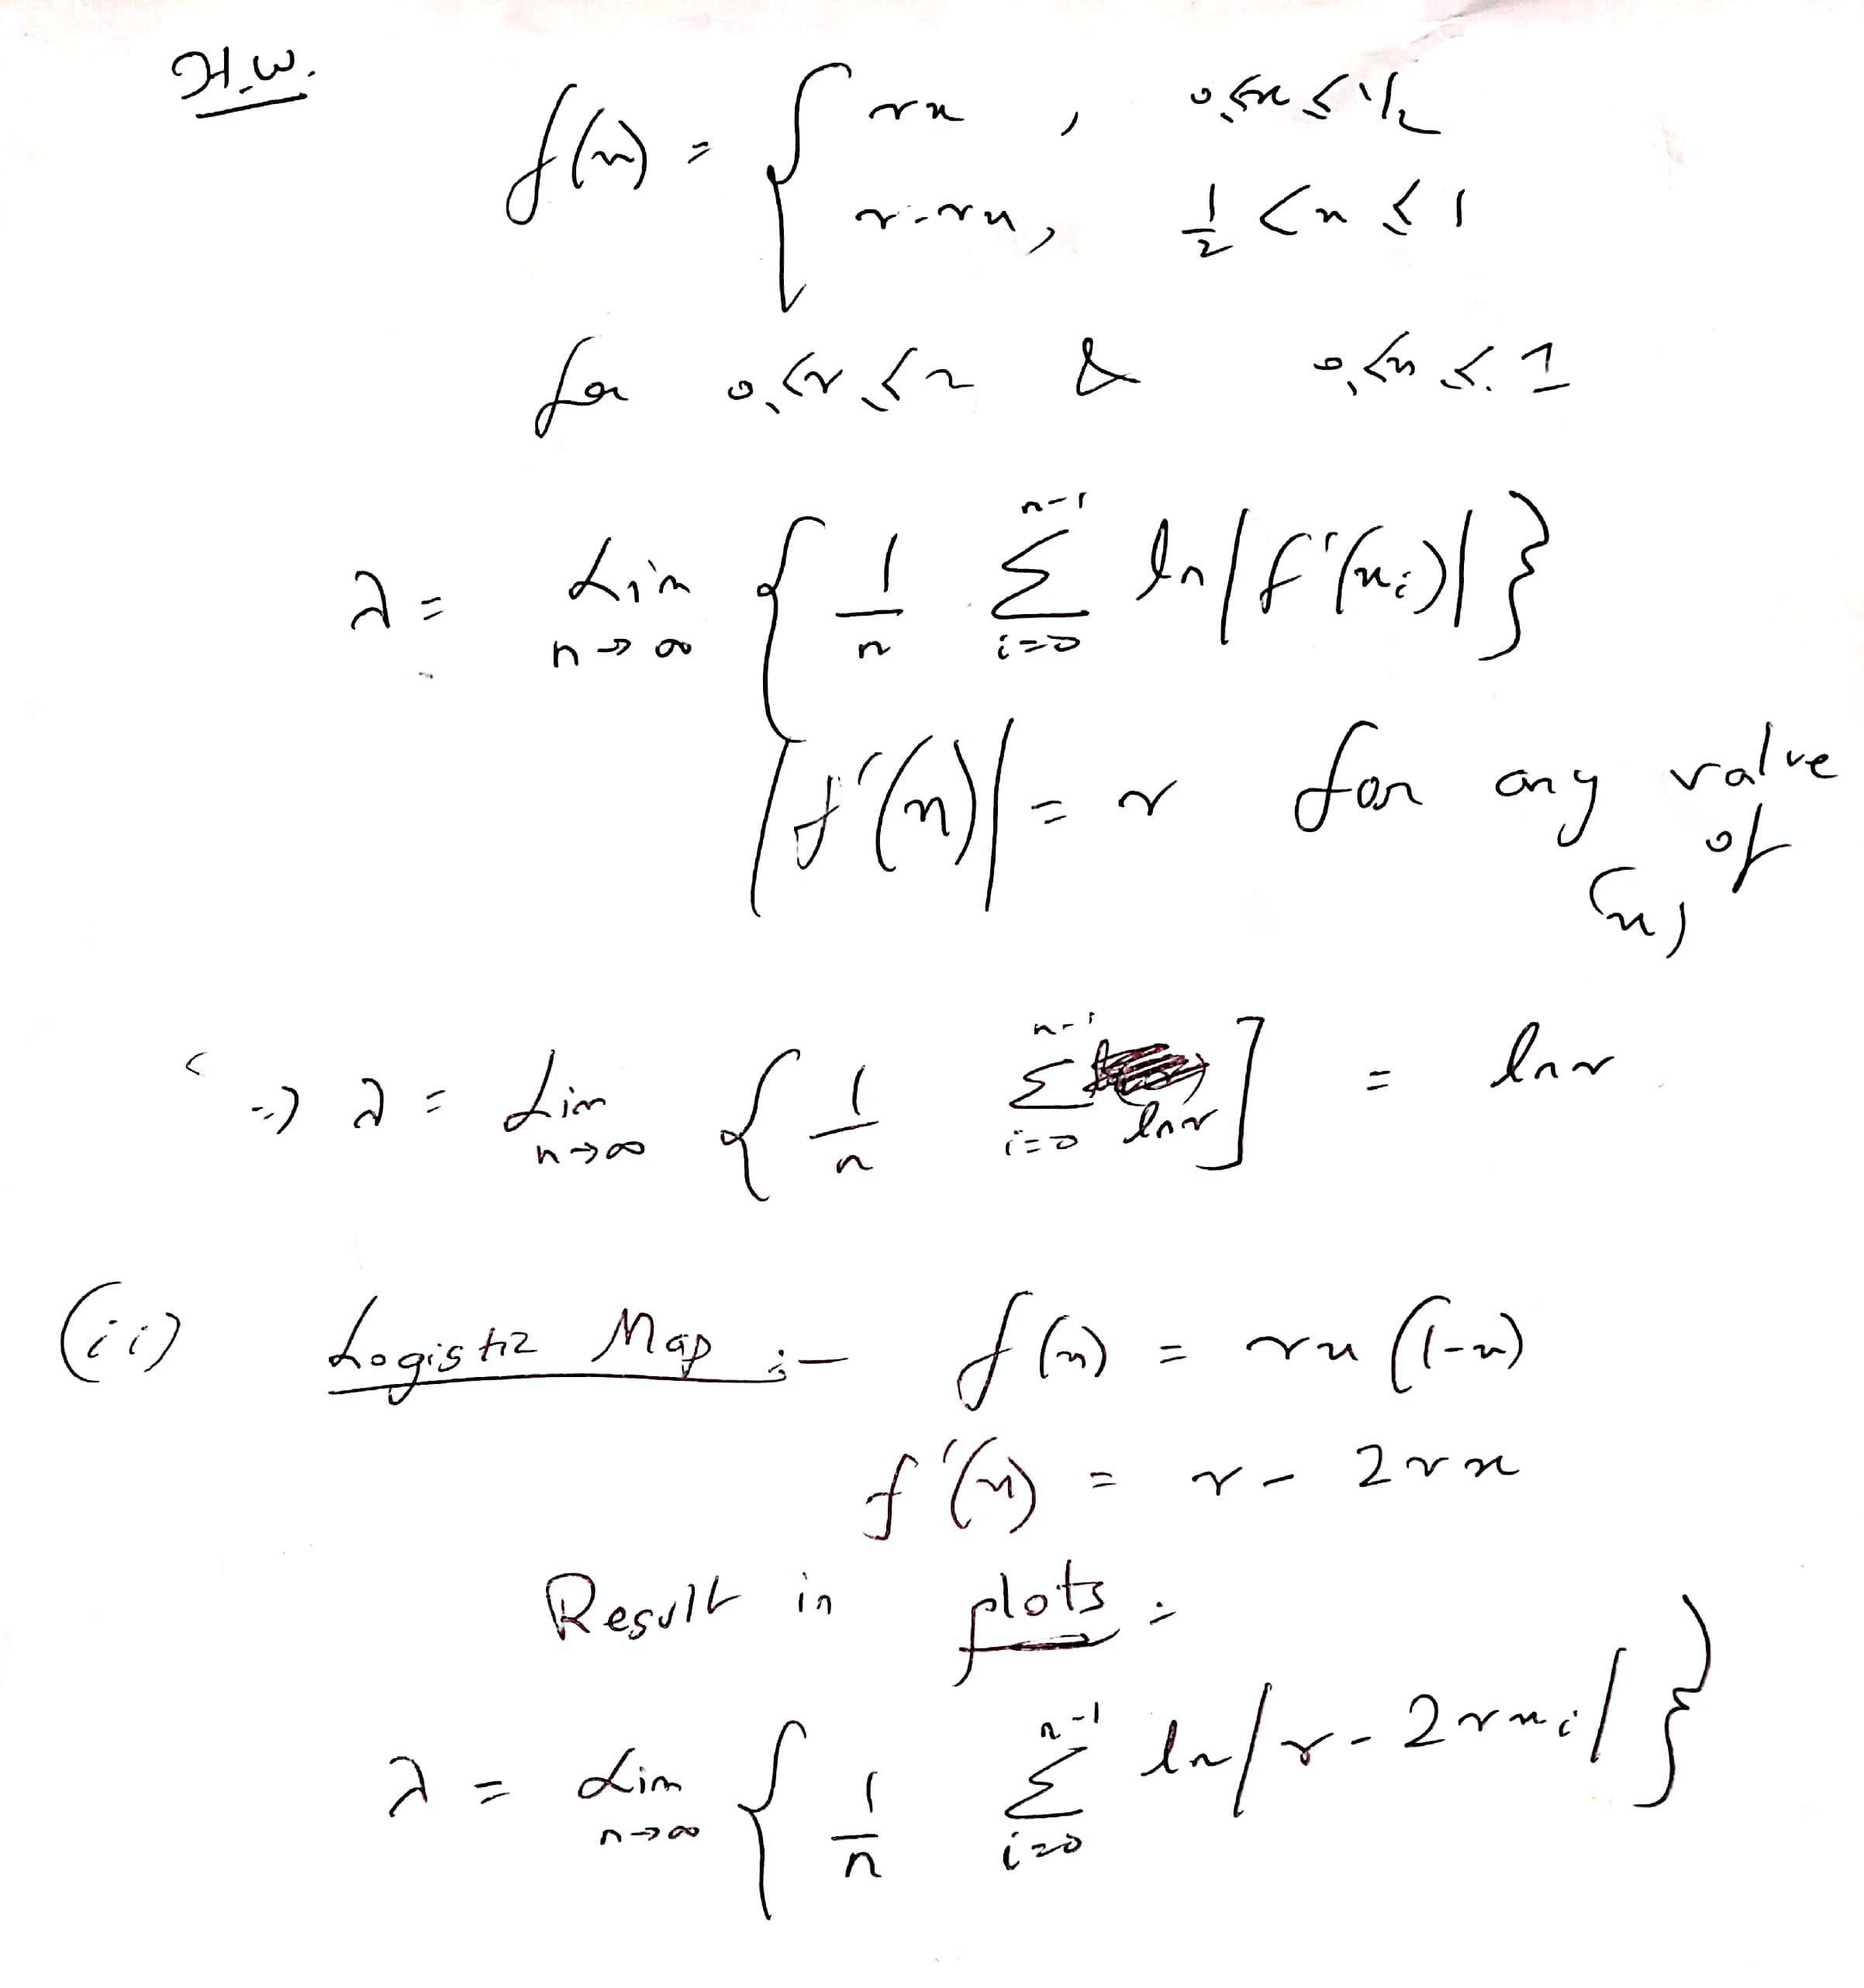 H.W.
f(x) = { rx , 0 ≤ x ≤ 1/2
r - rx, 1/2 < x ≤ 1
for 0 ≤ r ≤ 2 & 0 ≤ x ≤ 1
λ = Lim n→∞ { 1/n Σ_{i=0}^{n-1} ln|f'(x_i)| }
|f'(x)| = r for any value of (x)
⇒ λ = Lim n→∞ { 1/n Σ_{i=0}^{n-1} ln r ] = ln r
(ii) Logistic Map :- f(x) = rx(1-x)
f'(x) = r - 2rx
Result in plots :
λ = Lim n→∞ { 1/n Σ_{i=0}^{n-1} ln|r - 2rx_i| }